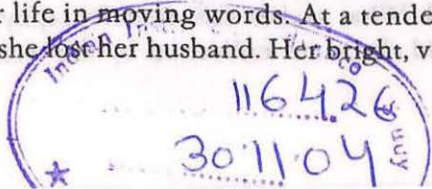 r life in moving words. At a tende
she lost her husband. Her bright, v
116426
30.11.04